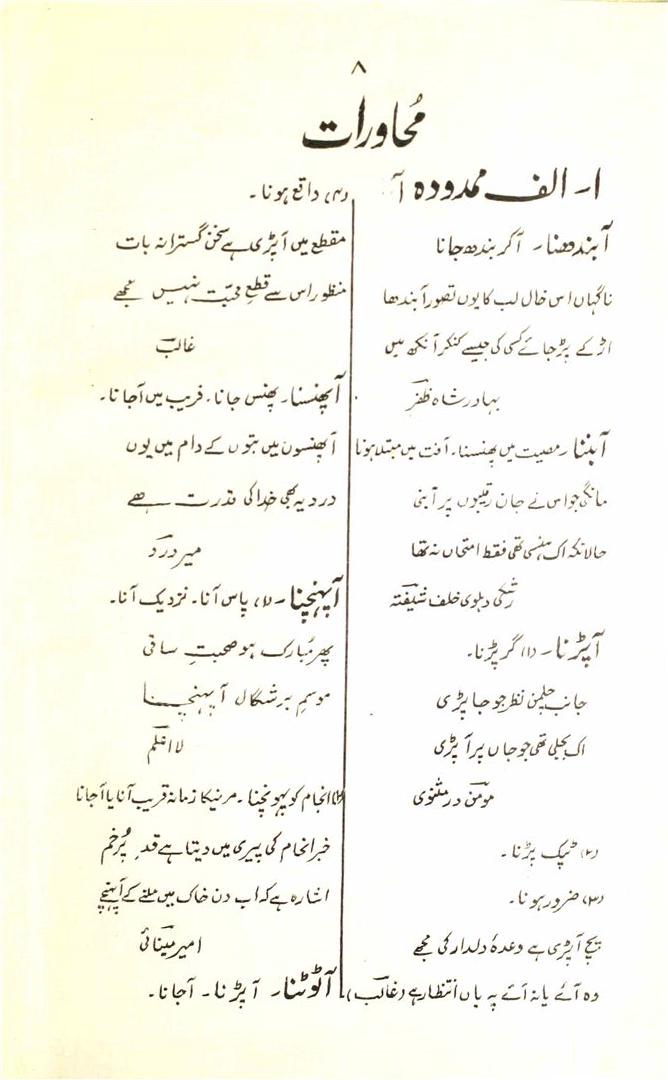 ۸
مُحاورات
۱۔ الف ممدودہ آ
آبندھنا۔ آکر بندھ جانا
ناگہاں اس خال لب کا یوں تصور آبندھا
اڑ کے پڑ جائے کسی کی جیسے کنکر آنکھ میں
بہادر شاہ ظفر
آبننا۔ مصیبت میں پھنسنا۔ آفت میں مبتلا ہونا
مانگی جو اس نے جان رقیبوں پر آبنی
حالانکہ اک ہنسی تھی فقط امتحاں نہ تھا
رشکی دہلوی خلف شیفتہ
آپڑنا۔ (۱) گر پڑنا۔
جانب چلمن نظر جو جا پڑی
اک بجلی تھی جو جاں پر آپڑی
مومن در مثنوی
(۲) ٹپک پڑنا۔
(۳) ضرور ہونا۔
پیچ آپڑی ہے وعدۂ دلدار کی مجھے
وہ آئے یا نہ آئے پہ یاں انتظار ہے (غالب)
(۴) واقع ہونا۔
مقطع میں آپڑی ہے سخن گسترانہ بات
منظور اس سے قطع محبت نہیں مجھے
غالب
آپھنسنا۔ پھنس جانا۔ فریب میں آجانا۔
آپھنسوں میں بتوں کے دام میں یوں
درد یہ بھی خدا کی قدرت ہے
میر درد
آپہنچنا۔ (۱) پاس آنا۔ نزدیک آنا۔
پھر مُبارک ہو صحبتِ ساقی
موسمِ برشگال آپہنچا
لا اعلم
(۲) انجام کو پہونچنا۔ مرنیکا زمانہ قریب آنا یا آجانا
خبر انجام کی پیری میں دیتا ہے قدِ پُرخم
اشارہ ہے کہ اب دن خاک میں ملنے کے آپہنچے
امیر مینائی
آٹوٹنا۔ آپڑنا۔ آجانا۔